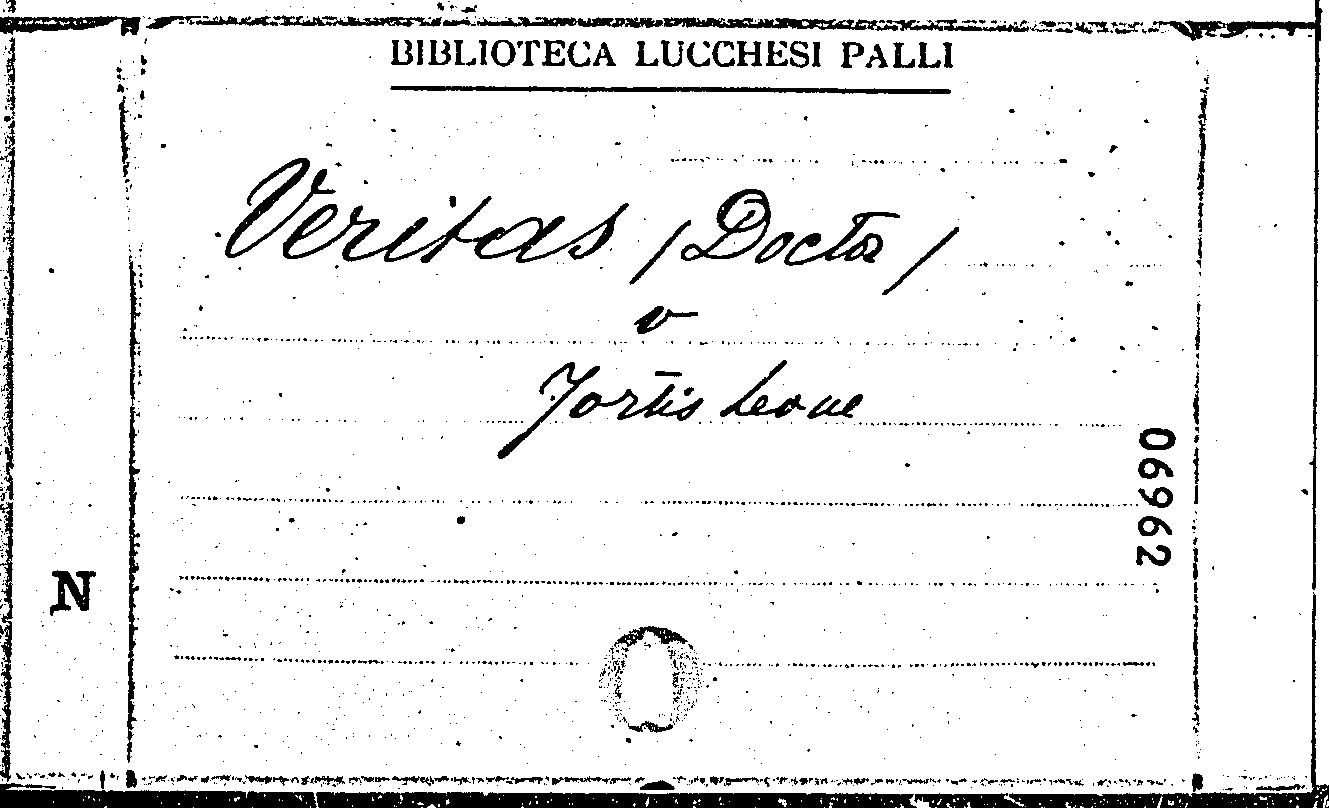 BIBLIOTECA LUCCHESI PALLI
Veritas (Doctor)
v
Fortis Leone
06962
N